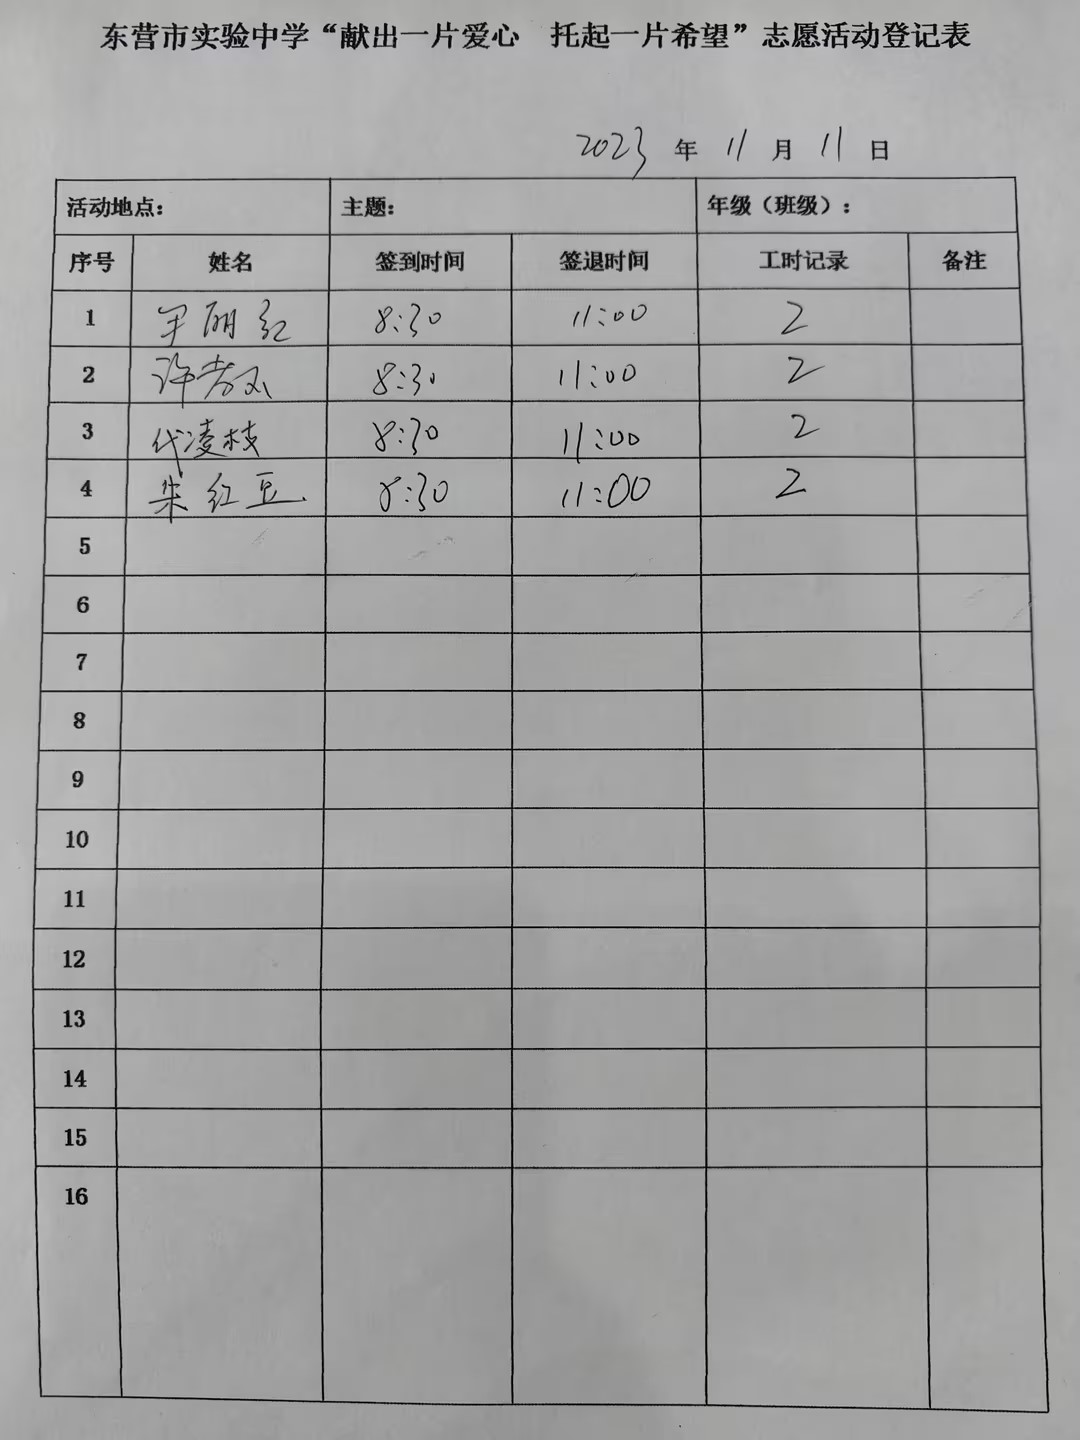 东营市实验中学“献出一片爱心 托起一片希望”志愿活动登记表
2023 年 11 月 11 日
活动地点: 主题: 年级（班级）:
序号 姓名 签到时间 签退时间 工时记录 备注
1 丽红 8:30 11:00 2
2 许 8:30 11:00 2
3 代凌枝 8:30 11:00 2
4 朱红豆 8:30 11:00 2
5
6
7
8
9
10
11
12
13
14
15
16